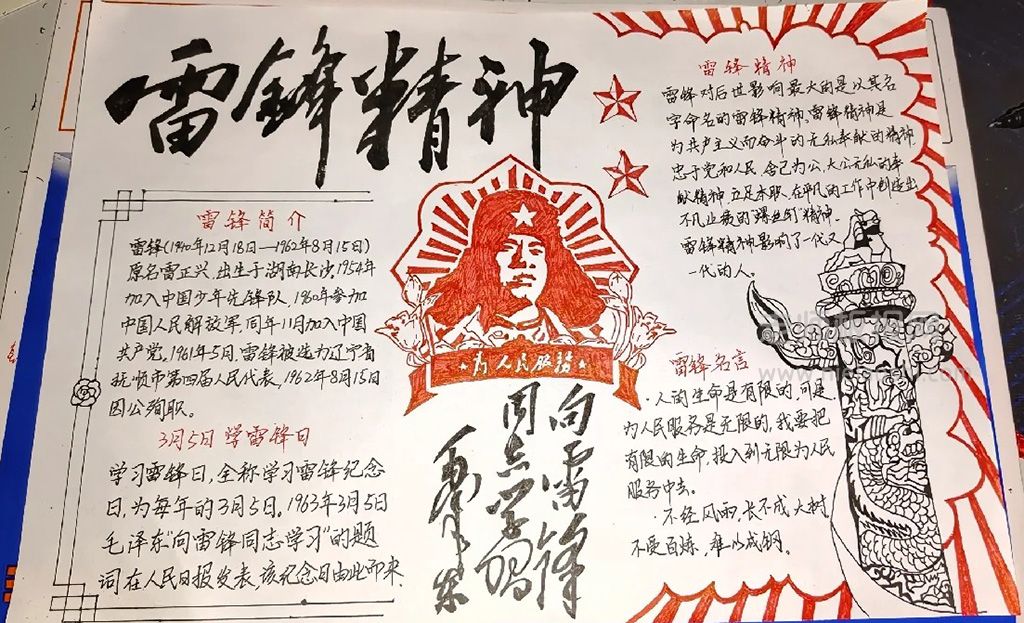 雷锋精神
雷锋简介
雷锋(1940年12月18日—1962年8月15日)
原名雷正兴,出生于湖南长沙,1954年
加入中国少年先锋队,1960年参加
中国人民解放军,同年11月加入中国
共产党。1961年5月,雷锋被选为辽宁省
抚顺市第四届人民代表,1962年8月15日
因公殉职。
3月5日 学雷锋日
学习雷锋日,全称学习雷锋纪念
日,为每年的3月5日。1963年3月5日
毛泽东"向雷锋同志学习"的题
词在人民日报发表,该纪念日由此而来.
为人民服务
向雷锋
同志学习
毛泽东
雷锋精神
雷锋对后世影响最大的是以其名
字命名的雷锋精神,雷锋精神是
为共产主义而奋斗的无私奉献的精神,
忠于党和人民,舍己为公,大公无私的奉
献精神,立足本职、在平凡的工作中创造出
不凡业绩的"螺丝钉"精神.
雷锋精神影响了一代又
一代的人。
雷锋名言
·人的生命是有限的,可是,
为人民服务是无限的,我要把
有限的生命,投入到无限为人民
服务中去。
·不经风雨,长不成大树
不受百炼,难以成钢。